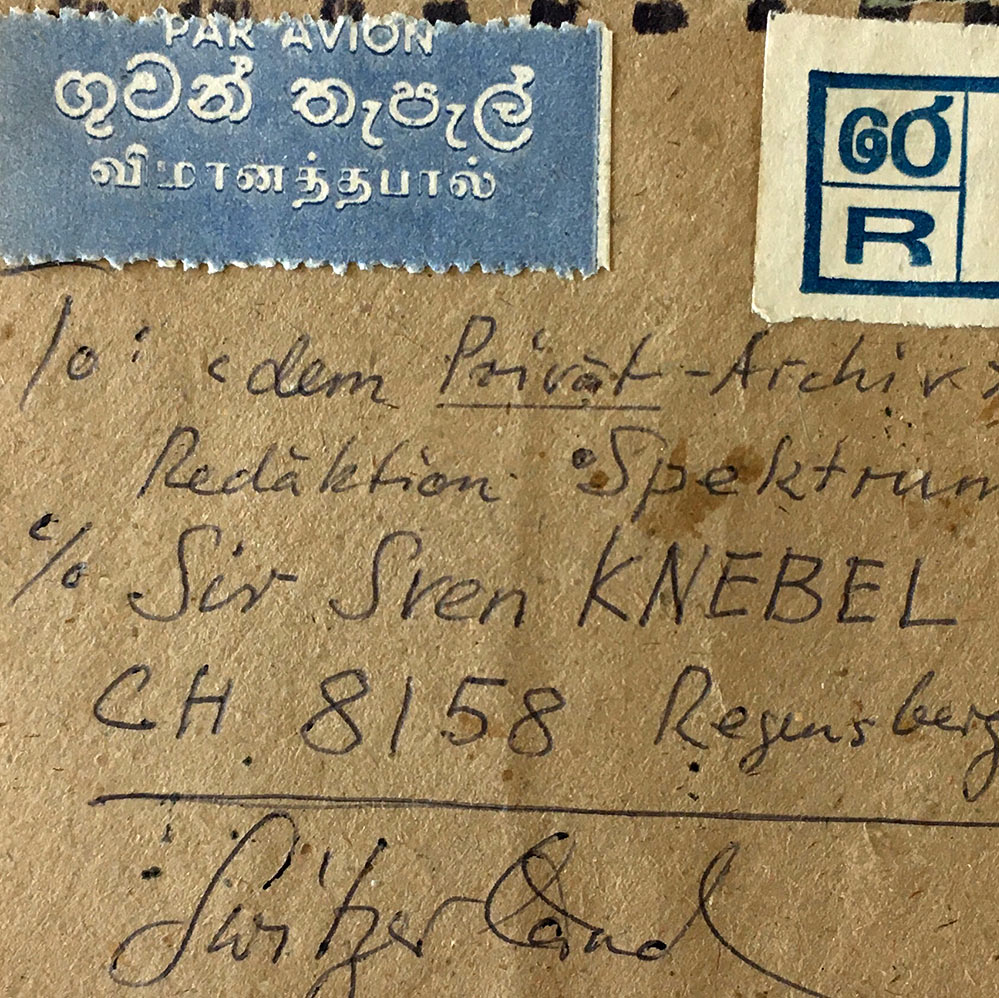 PAR AVION
ගුවන් තැපැල්
விமானத்தபால்
රෙ
R
dem Privat-Archiv
Redaktion Spektrum
c/o Sir Sven KNEBEL
CH 8158 Regensberg
Switzerland